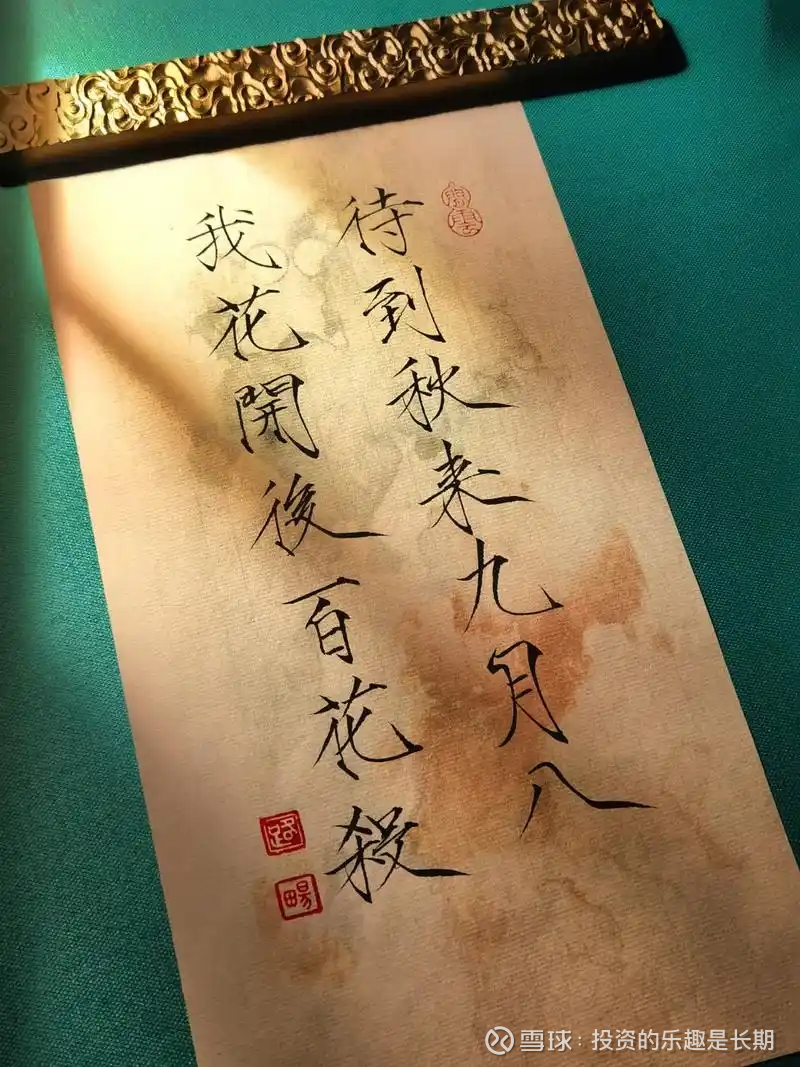 待到秋来九月八
我花開後百花殺
路
暢
雪球：投资的乐趣是长期